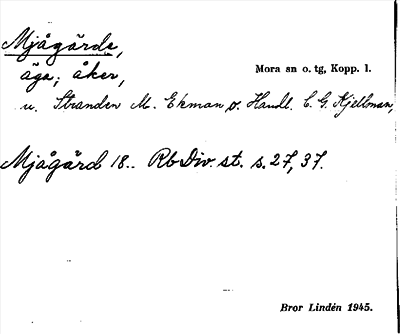 Mjågårde,
äga; åker,
Mora sn o. tg, Kopp. l.
u. Stranden M. Ekman, o. Handl. C. G. Kjellman,
Mjågård 18.. Rb Div. st. s. 27, 37.
Bror Lindén 1945.